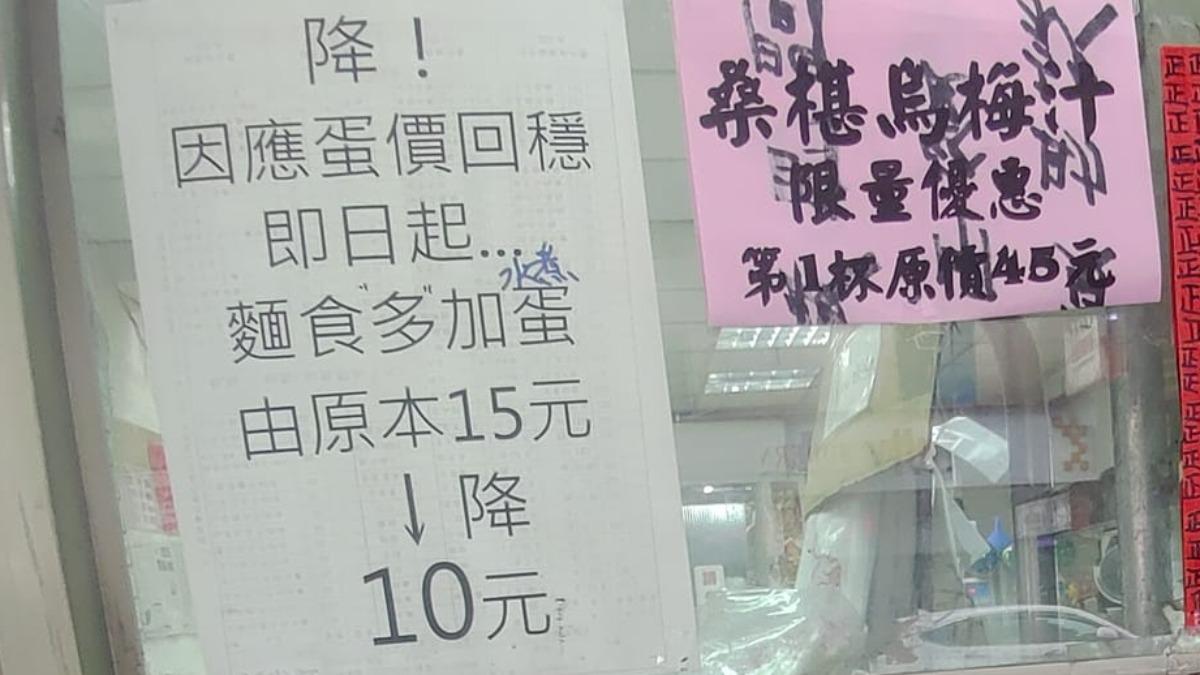 降！
因應蛋價回穩
即日起...
水煮
麵食"多"加蛋
由原本15元
↓降
10元
桑椹烏梅汁
限量優惠
第1杯原價45元